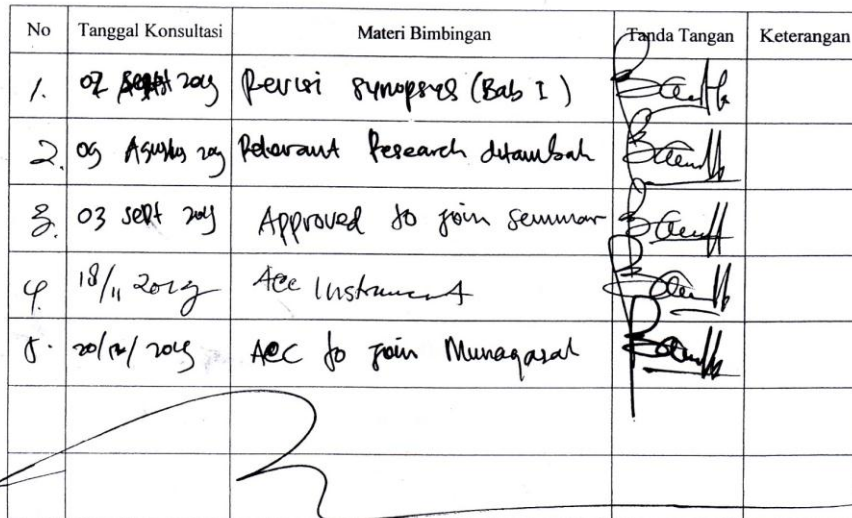 No Tanggal Konsultasi Materi Bimbingan Tanda Tangan Keterangan
1. 07 Sept 2019 Revisi synopsys (Bab I)
2. 09 Agustus 2019 Relevant Research ditambah
3. 03 Sept 2019 Approved to join seminar
4. 18/11 2019 Acc Instrument
5. 20/12/2019 ACC to join Munaqasah